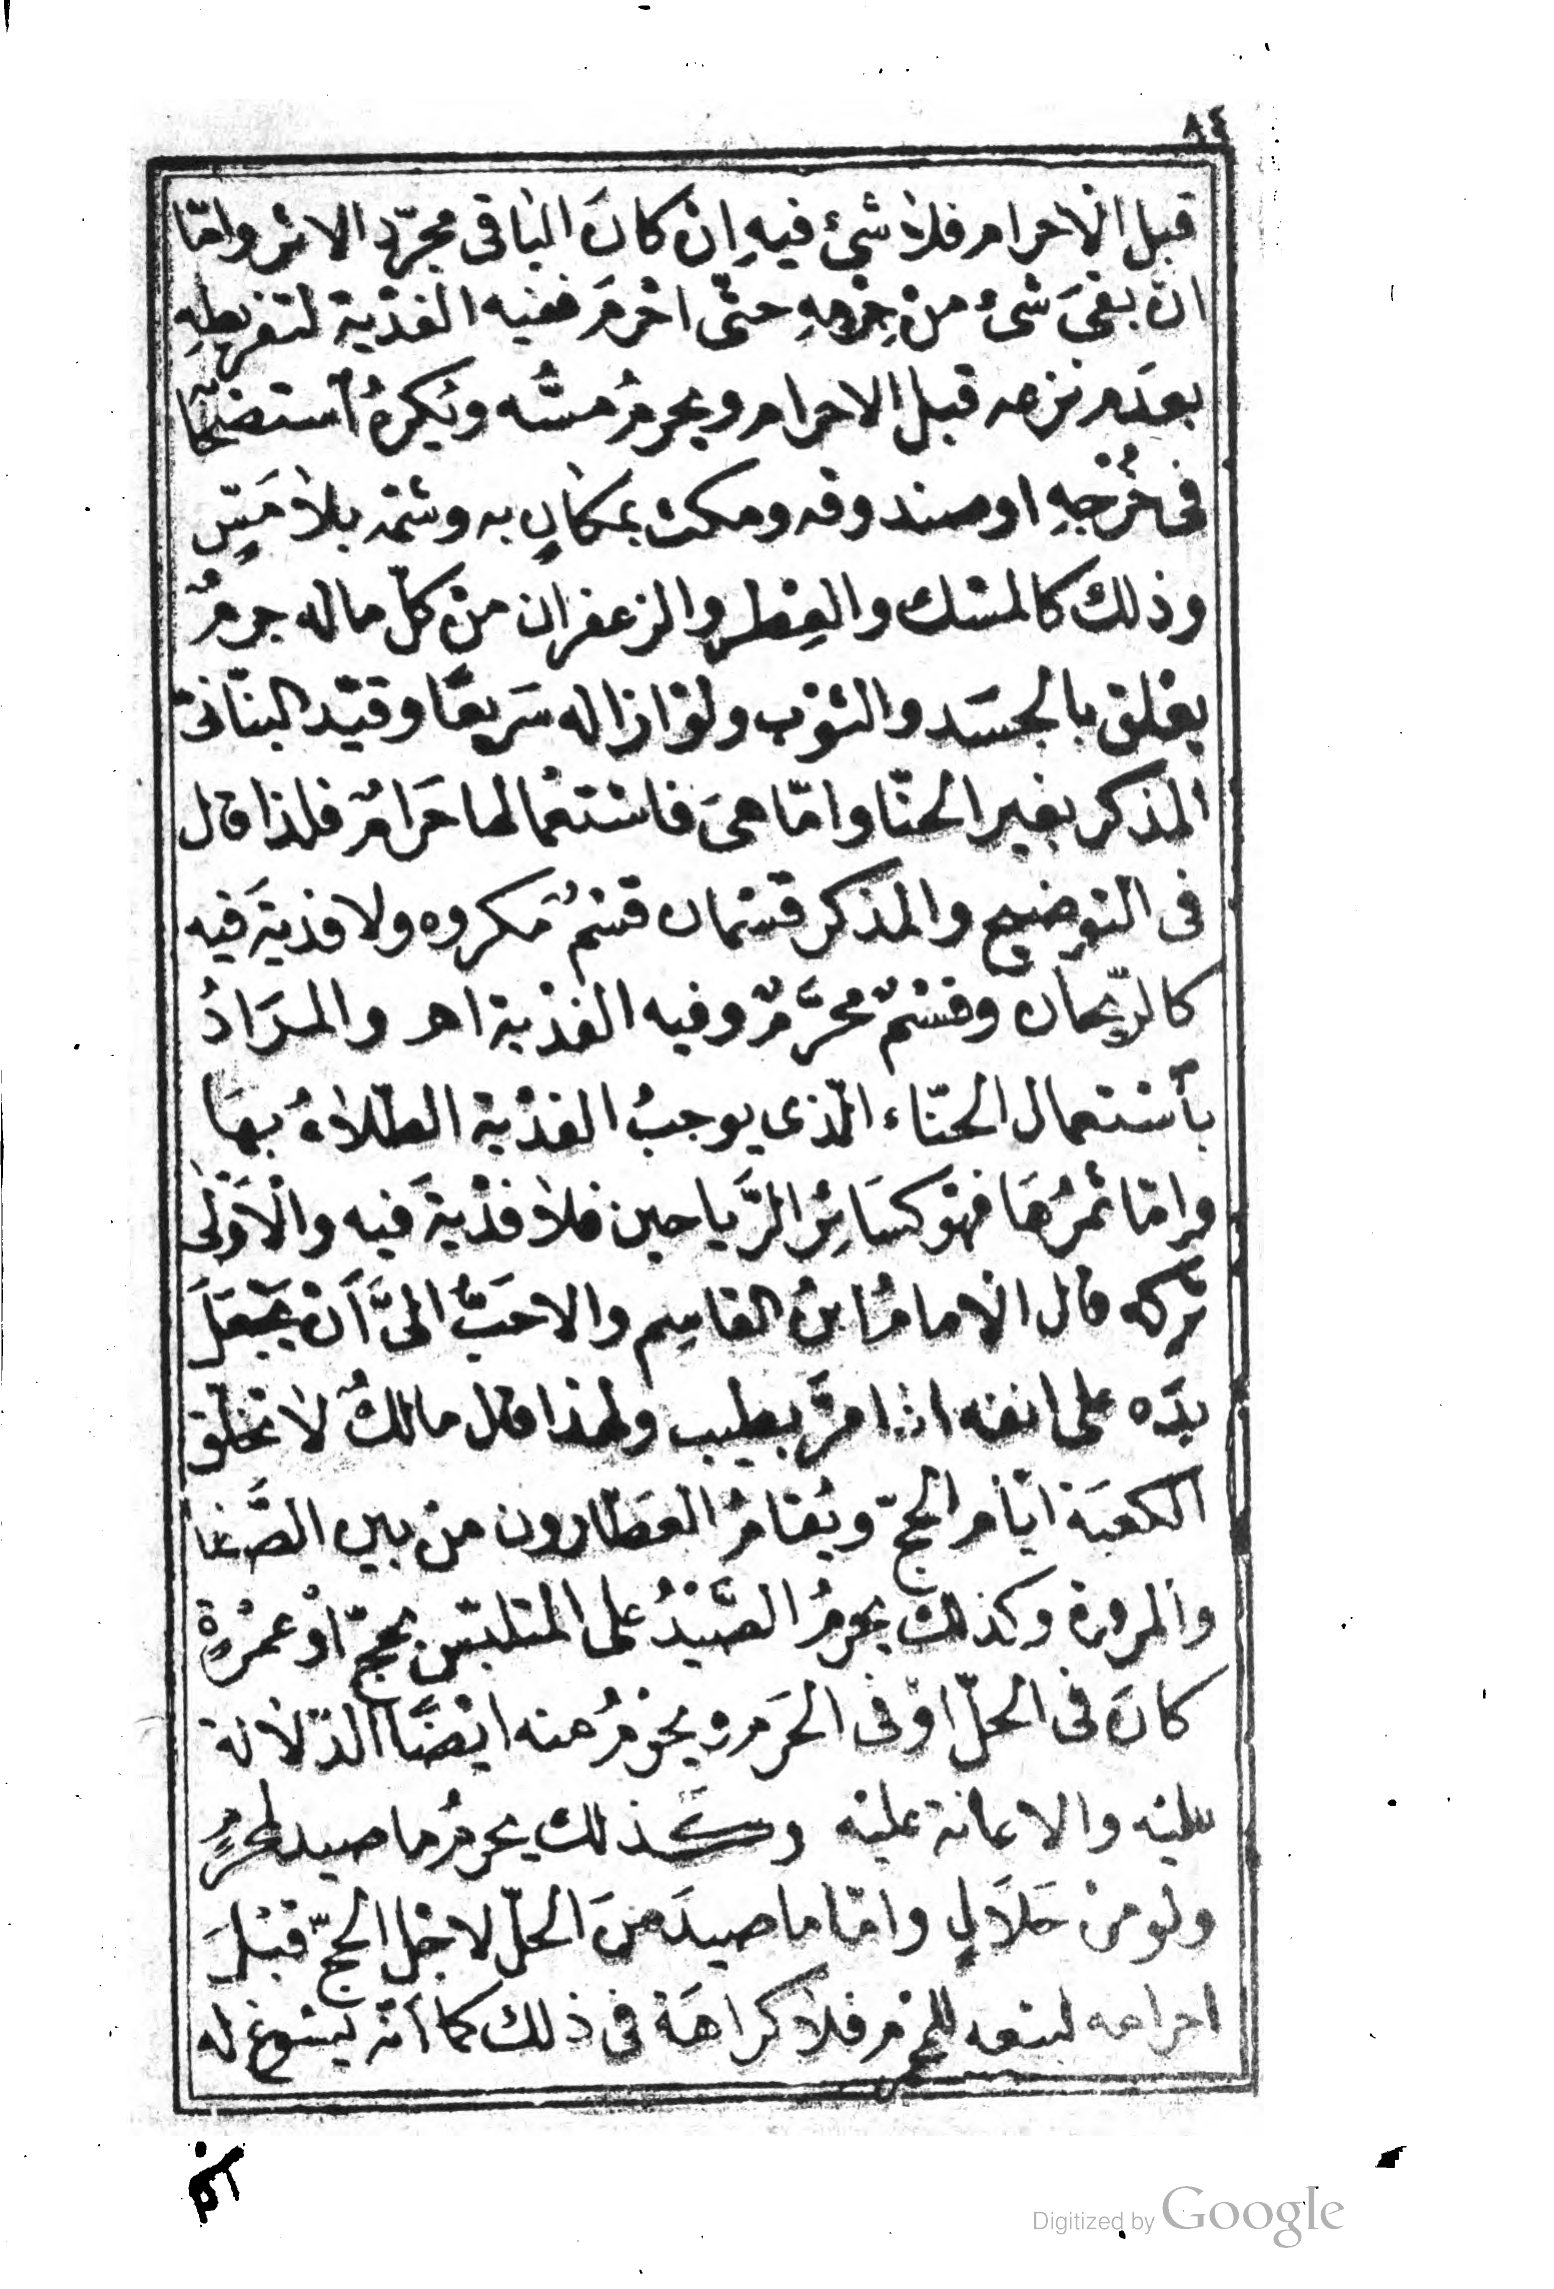 ٨٤
قبل الاحرام فلا شئ فيهِ اِنْ كانَ الباقى مجرّد الاثر وامّا
ان بقىَ شئ منْ جِرْمهِ حتّى احْرمَ ففيه الفدْية لتفريطهِ
بعدَم نزعه قبل الاحرام ويحرمُ مسُّه ويُكرهُ استصحابُه
فى خُرْجهِ اوصندوقه ومكث بمكانٍ به وشمّه بلا مَسٍّ
وذلك كالمسْك والعِطر والزعفران منْ كلّ ماله جرمٌ
يعْلق بالجسَد والثوْب ولوْ ازاله سَريعًا وقيّد البنّانىّ
المذكر بغير الحنّا وامّا هىَ فاسْتعْمالها حَرامٌ فلذا قال
فى التوضيح والمذكر قسْمان قسْمٌ مَكروه ولا فديةَ فيه
كالرّيحان وقسْمٌ محرَّمٌ وفيه الفدْية اهـ والمرَادُ
بأسْتعمال الحنّاء الّذى يوجبُ الفدْية الطّلاءُ بهَا
وامّا ثمرُهَا فهوَ كسَائِرُ الرَّياحين فلا فدْيةَ فيه والْاَوْلى
تركه قال الامامُ ابنُ القاسِم والاحَبُّ الىَّ اَنْ يجعَلَ
يدَه على انفه اذا مرَّ بطيب ولهذا قال مالكٌ لا تخلّق
الكعبَة ايّام الحجّ ويُقامُ العَطّارون منْ بين الصَّفا
والمروة وكذلك يحرمُ الصَّيْدُ على المتلبّس بحجّ اوْ عمْرةٍ
كانَ فى الحلّ اوْ فى الحَرَم ويحْرمُ منه ايْضًا الدّلالة
عليْه والاعانة عليْه وكذلك يحرمُ ما صيد لمحرمٍ
ولوْ منْ حَلَالٍ وامّا ما صيدَ منَ الحلّ لاجْل الحجّ قبْلَ
احرامه لبيعه للمحْرم فلا كراهَة فى ذلك كما أنّه يسُوغ له